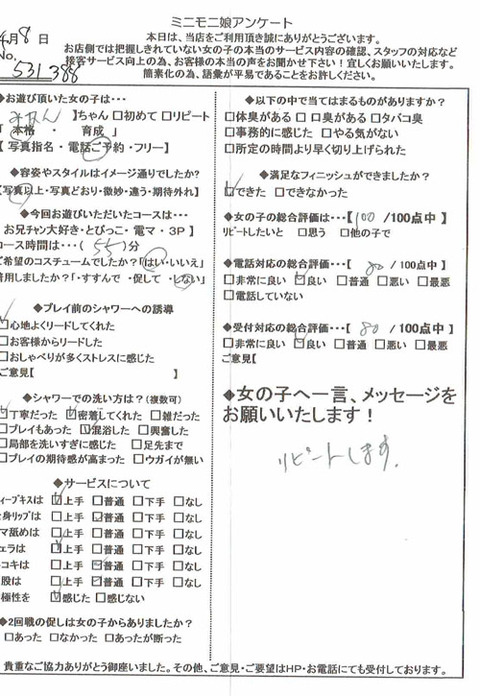 ミニモニ娘アンケート
4月8日
本日は、当店をご利用頂き誠にありがとうございます。
No.
531388
お店側では把握しきれていない女の子の本当のサービス内容の確認、スタッフの対応など
接客サービス向上の為、お客様の本当の声をお聞かせ下さい！宜しくお願いいたします。
簡素化の為、語彙が平易であることをお許しください。
◆お遊び頂いた女の子は・・・
】ちゃん □初めて □リピート
「 本格 ・ 育成 」
【 写真指名・電話ご予約・フリー】
◆容姿やスタイルはイメージ通りでしたか?
【写真以上・写真どおり・微妙・違う・期待外れ】
◆今回お遊びいただいたコースは…
お兄チャン大好き・とびっこ・電マ・3P】
コース時間は…( 55 )分
ご希望のコスチュームでしたか?「はい・いいえ」
着用しましたか?「・すすんで ・促して ・しない」
◆プレイ前のシャワーへの誘導
□心地よくリードしてくれた
□お客様からリードした
□おしゃべりが多くストレスに感じた
ご意見【 】
◆シャワーでの洗い方は?(複数可)
□丁寧だった □密着してくれた □雑だった
□プレイもあった □混浴した □興奮した
□局部を洗いすぎに感じた □足先まで
□プレイの期待感が高まった □ウガイが無い
◆サービスについて
ィープキスは □上手 □普通 □下手 □なし
身リップは □上手 □普通 □下手 □なし
マ舐めは □上手 □普通 □下手 □なし
ェラは □上手 □普通 □下手 □なし
コキは □上手 □普通 □下手 □なし
股は □上手 □普通 □下手 □なし
極性を □感じた □感じない
◆2回戦の促しは女の子からありましたか?
□あった □なかった □あったが断った
◆以下の中で当てはまるものがありますか?
□体臭がある □口臭がある □タバコ臭
□事務的に感じた □やる気がない
□所定の時間より早く切り上げられた
◆満足なフィニッシュができましたか?
□できた □できなかった
◆女の子の総合評価は…【 100 /100点中】
ﾘﾋﾟｰﾄしたいと □思う □他の子で
◆電話対応の総合評価…【 80 /100点中】
□非常に良い □良い □普通 □悪い □最悪
□電話していない
◆受付対応の総合評価…【 80 /100点中】
□非常に良い □良い □普通 □悪い □最悪
ご意見【
◆女の子へ一言、メッセージを
お願いいたします！
リピートします。
貴重なご協力ありがとう御座いました。その他、ご意見・ご要望はHP・お電話にても受付しております。